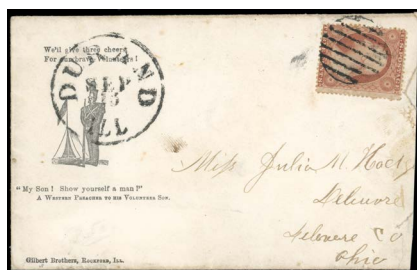 We'll give three cheers
For our brave Volunteers!
DURAND
SEP
ILL
Miss Julia M.
"My Son! Show yourself a man!"
A Western Preacher to his Volunteer Son.
Delaware
Delaware Co
Ohio
Gilbert Brothers, Rockford, Ill.